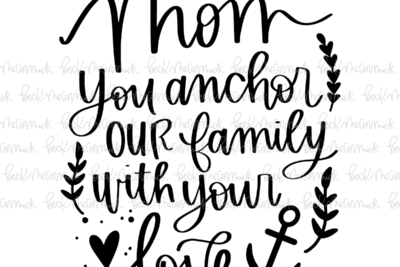 Mom
You anchor
OUR family
with your
love